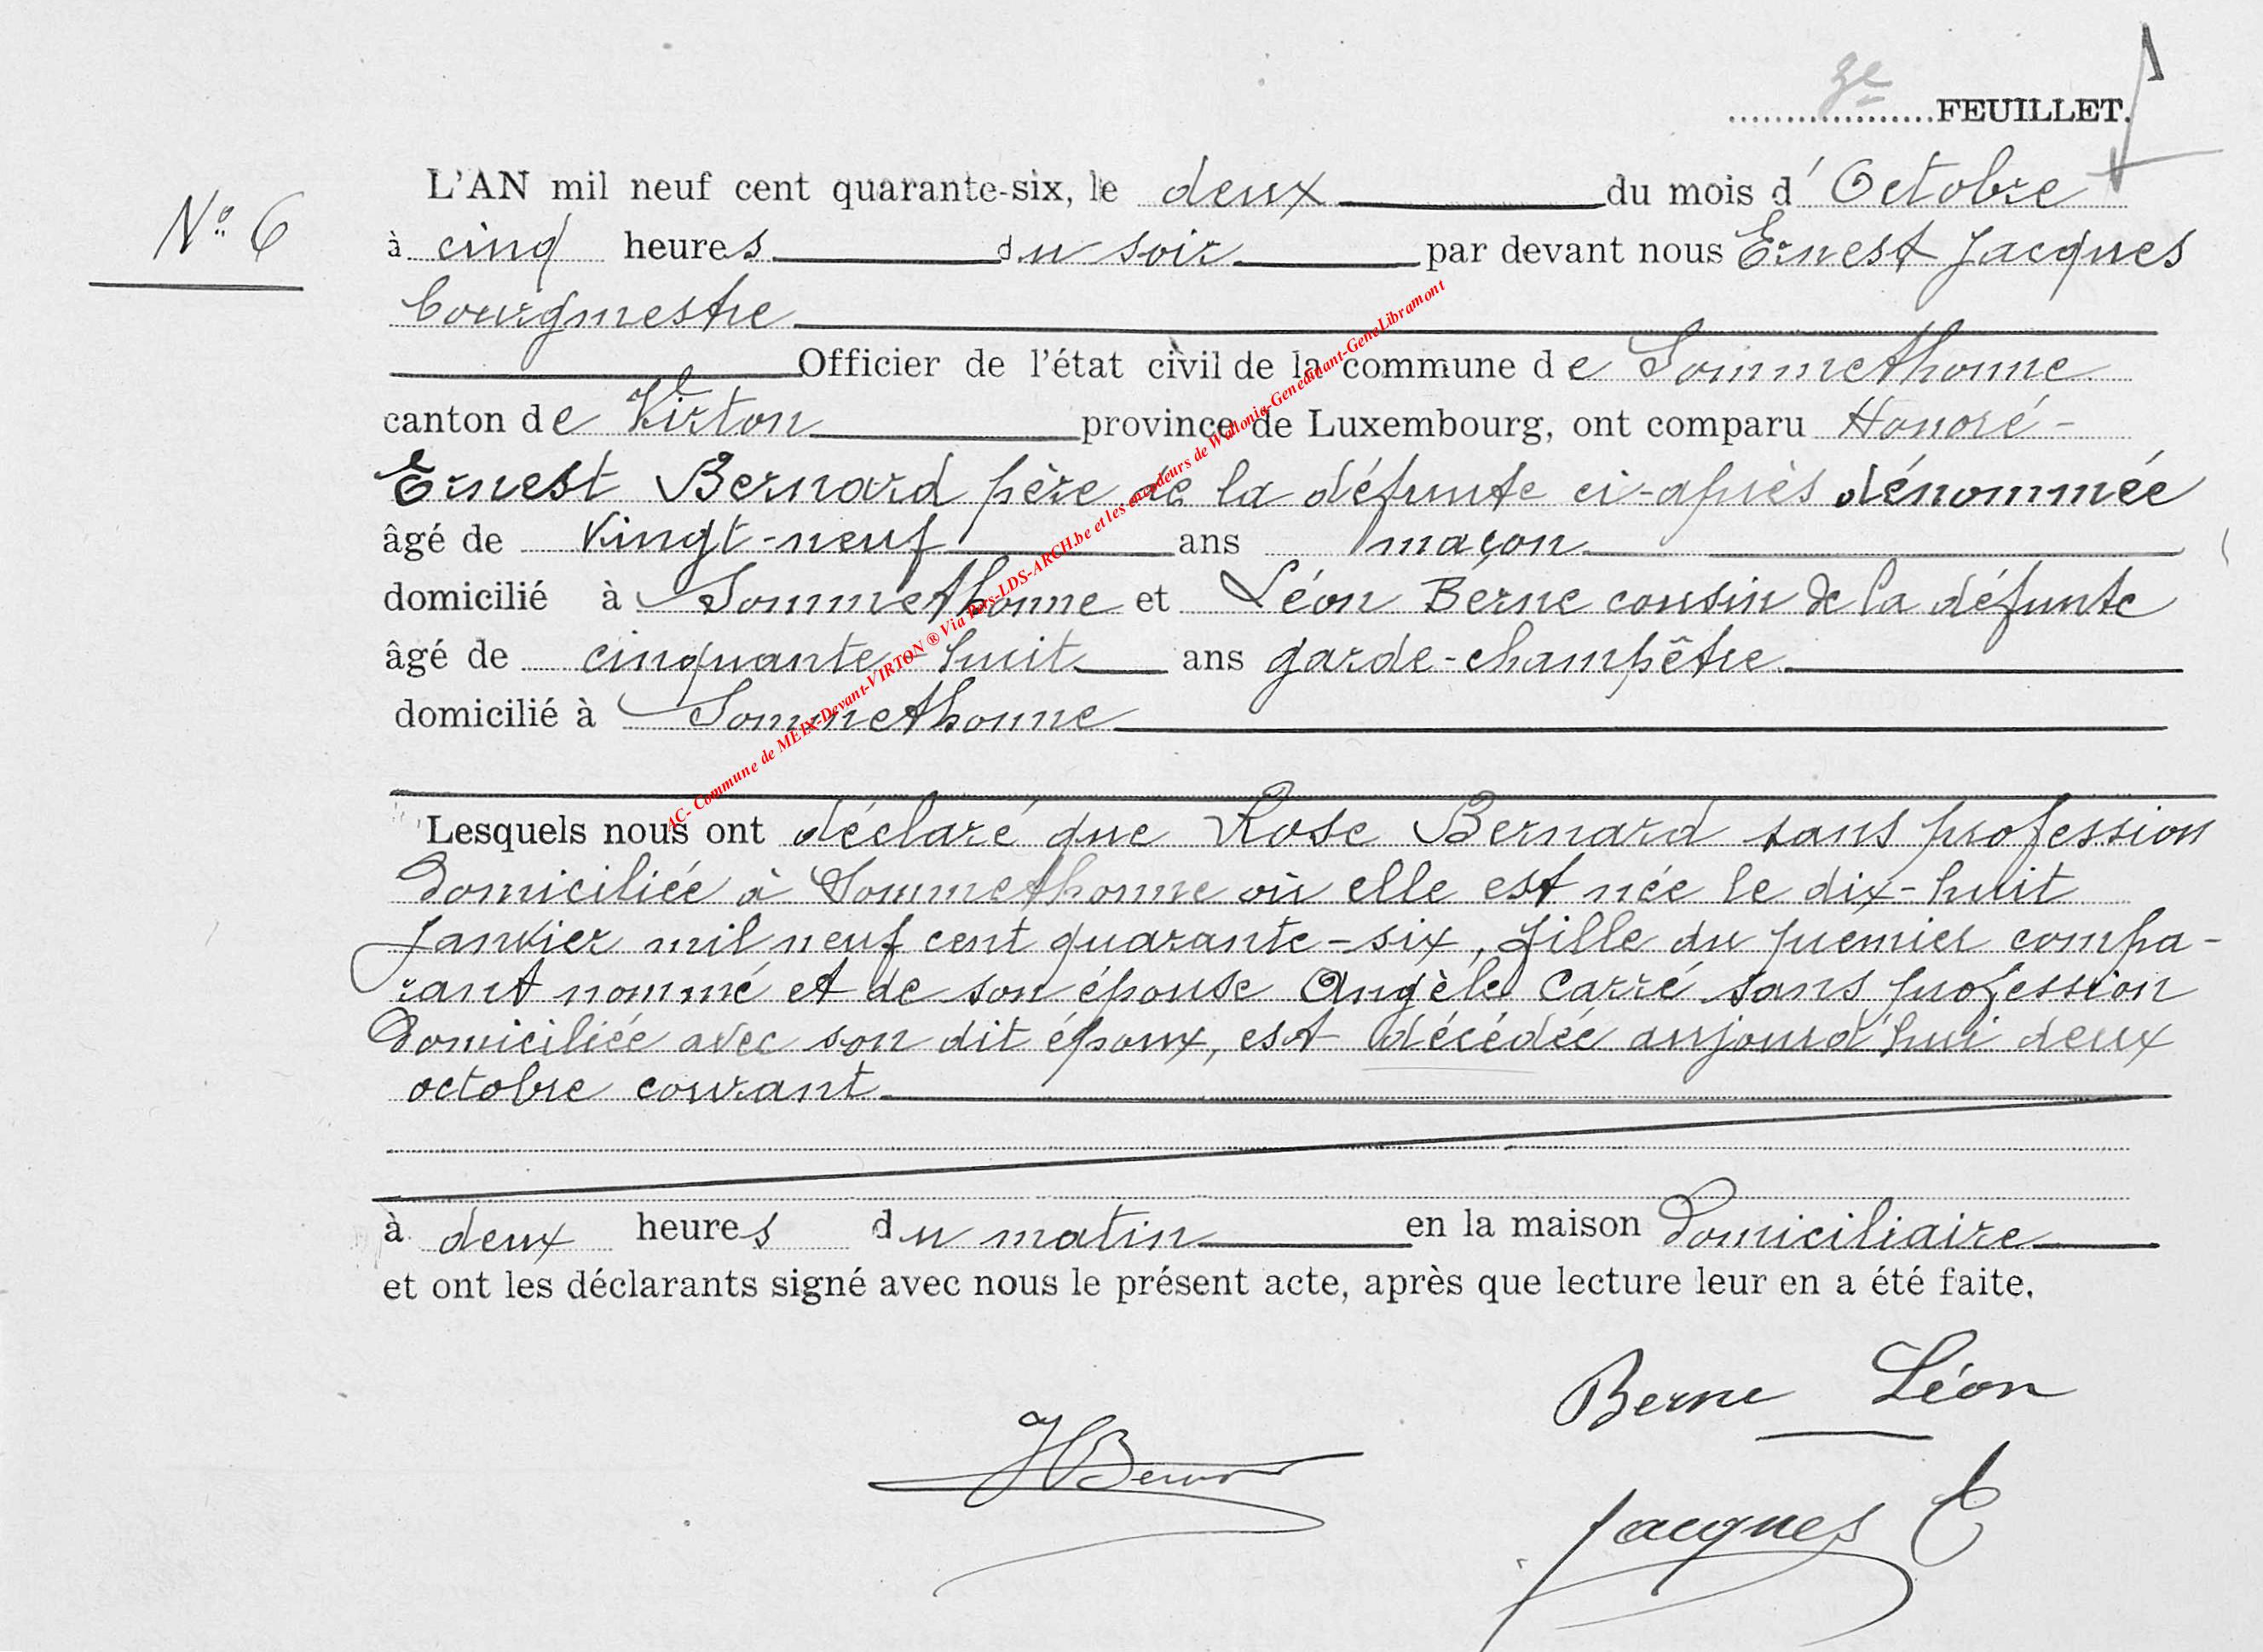 3e FEUILLET.
N° 6
L'AN mil neuf cent quarante-six, le deux du mois d'Octobre
à cinq heures du soir par devant nous Ernest Jacques
bourgmestre
Officier de l'état civil de la commune de Sommethonne
canton de Virton province de Luxembourg, ont comparu Honoré-
Ernest Bernard père de la défunte ci-après dénommée
âgé de vingt-neuf ans maçon
domicilié à Sommethonne et Léon Berne cousin de la défunte
âgé de cinquante-huit ans garde-champêtre
domicilié à Sommethonne
Lesquels nous ont déclaré que Rose Bernard sans profession
domiciliée à Sommethonne où elle est née le dix-huit
Janvier mil neuf cent quarante-six, fille du premier compa-
rant nommé et de son épouse Angèle Carré sans profession
domiciliée avec son dit époux, est décédée aujourd'hui deux
octobre courant
à deux heures du matin en la maison domiciliaire
et ont les déclarants signé avec nous le présent acte, après que lecture leur en a été faite.
Berne Léon
HBernard
Jacques E
AC- Commune de MEIX-Devant-VIRTON ® Via Pars-LDS-ARCH.be et les encodeurs de Wallonia-Genedinant-GeneLibramont